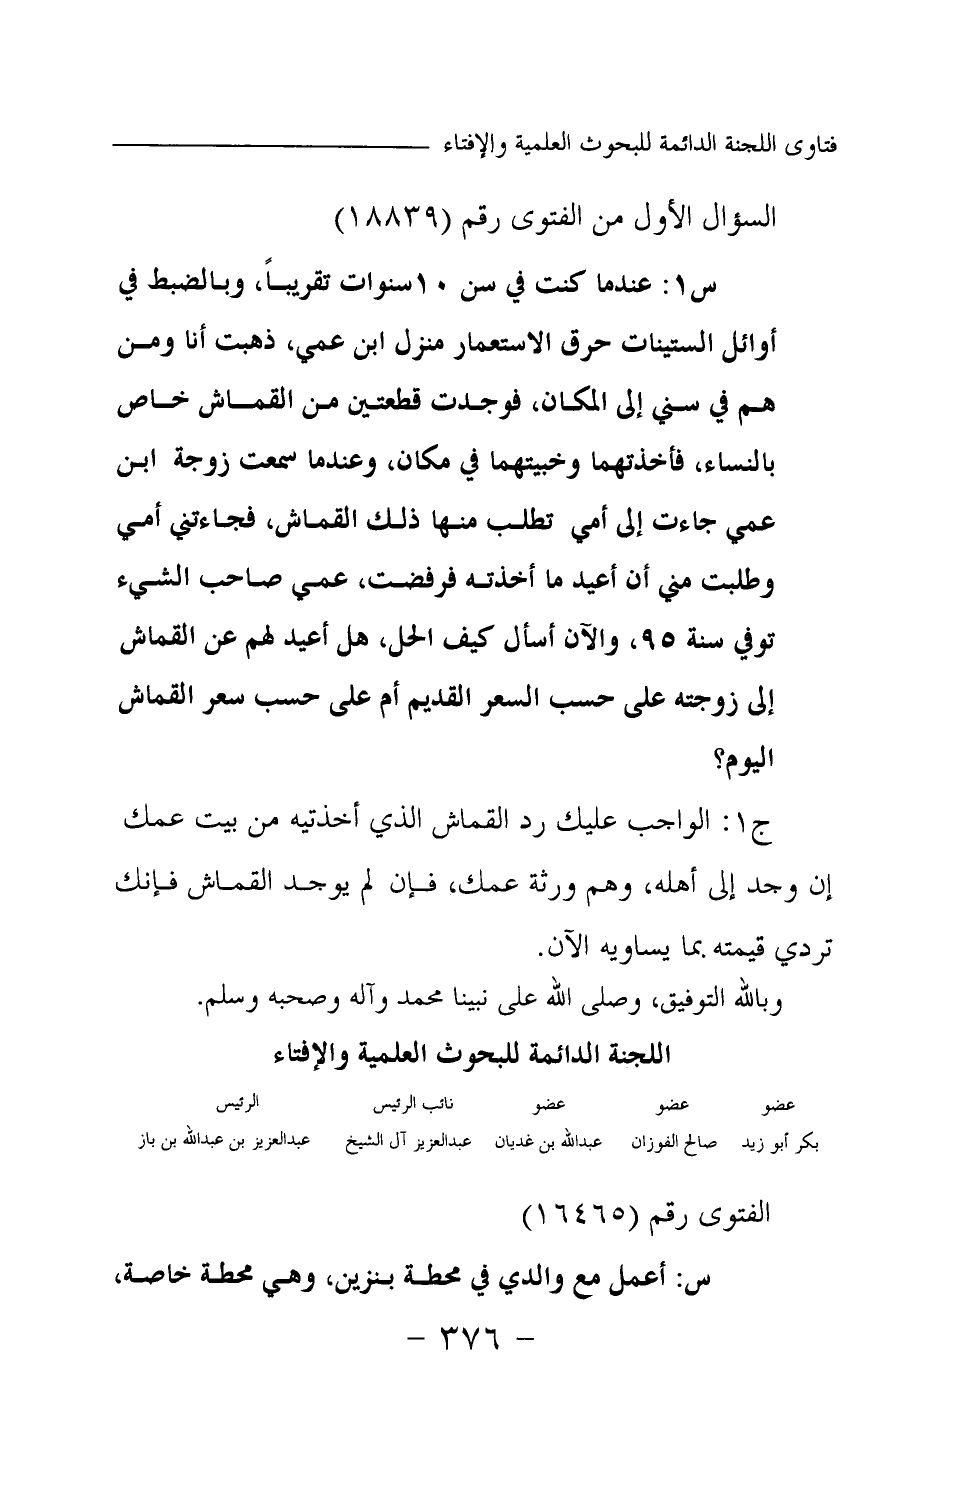 فتاوى اللجنة الدائمة للبحوث العلمية والإفتاء
السؤال الأول من الفتوى رقم (١٨٨٣٩)
س١: عندما كنت في سن ١٠سنوات تقريباً، وبالضبط في
أوائل الستينات حرق الاستعمار منزل ابن عمي، ذهبت أنا ومن
هم في سني إلى المكان، فوجدت قطعتين من القماش خاص
بالنساء، فأخذتهما وخبيتهما في مكان، وعندما سمعت زوجة ابن
عمي جاءت إلى أمي تطلب منها ذلك القماش، فجاءتني أمي
وطلبت مني أن أعيد ما أخذته فرفضت، عمي صاحب الشيء
توفي سنة ٩٥، والآن أسأل كيف الحل، هل أعيد لهم عن القماش
إلى زوجته على حسب السعر القديم أم على حسب سعر القماش
اليوم؟
ج١: الواجب عليك رد القماش الذي أخذتيه من بيت عمك
إن وجد إلى أهله، وهم ورثة عمك، فإن لم يوجد القماش فإنك
تردي قيمته بما يساويه الآن.
وبالله التوفيق، وصلى الله على نبينا محمد وآله وصحبه وسلم.
اللجنة الدائمة للبحوث العلمية والإفتاء
عضو عضو عضو نائب الرئيس الرئيس
بكر أبو زيد صالح الفوزان عبدالله بن غديان عبدالعزيز آل الشيخ عبدالعزيز بن عبدالله بن باز
الفتوى رقم (١٦٤٦٥)
س: أعمل مع والدي في محطة بنزين، وهي محطة خاصة،
- ٣٧٦ -